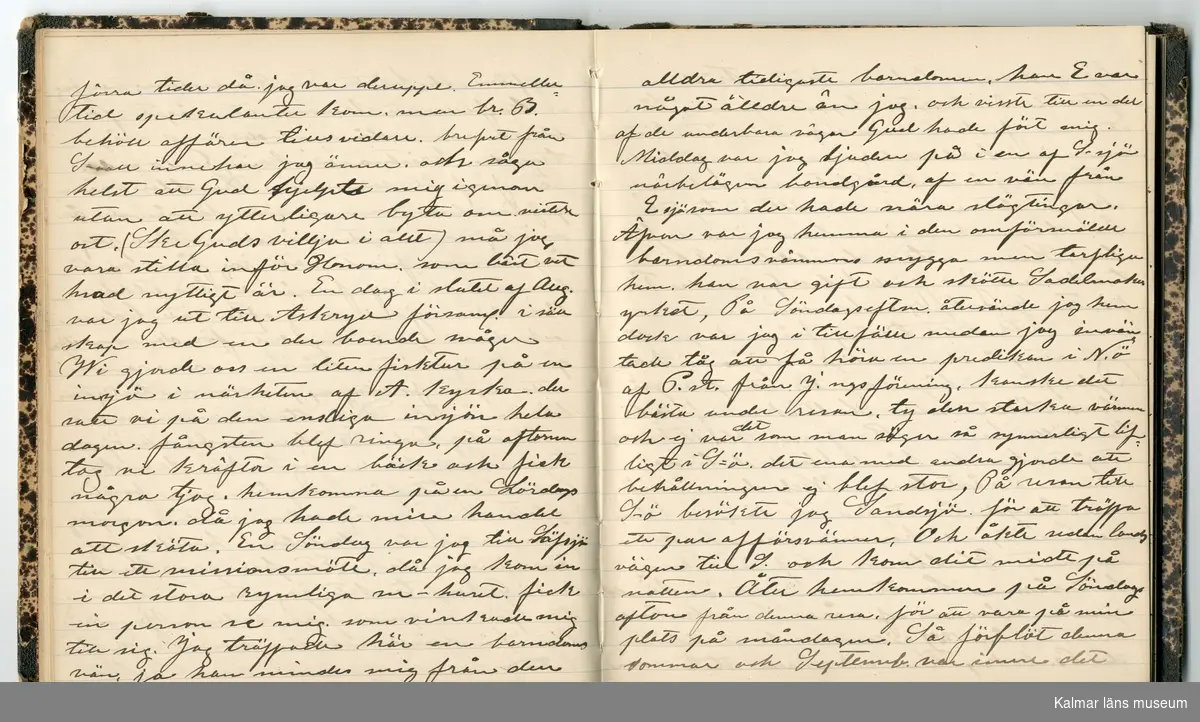 förra tider då jag var deruppe. Emmeller-
tid spekulanter kom, men br. B.
behöll affären tillsvidare. brefvet från
innehar jag ännu. och såge
helst att Gud hjelpte mig igenom
utan att ytterligare byta om vistelse
ort. (Ske Guds villja i allt) må jag
vara stilla inför Honom. som bäst vet
hvad nyttigt är. En dag i slutet af Aug.
var jag ut till Askeryd församl. i säll
skap med en der boende måg
Wi gjorde oss en liten fisktur på en
insjö i närheten af A. kyrka. der
satt vi på den ensliga insjön hela
dagen. fångsten blef ringa, på aftonen
tog vi kräftor i en bäck och fick
några tjog. hemkomna på en Lördags
morgon. då jag hade mina handel
att sköta. En Söndag var jag till Säfsjö
till ett missionsmöte, då jag kom in
i det stora rymliga m-huset. fick
en person se mig. som vinkade mig
till sig. Jag träffade här en barndoms
vän, ja han mindes mig från den
alldra tidigaste barndomen, han E var
något älldre än jag. och visste till en del
af de underbara vägar Gud hade fört mig.
Middag var jag bjuden på i en af S-sjö
närbelägen bondgård, af en vän från
E sjö som der hade nära slägtingar.
Äfven var jag hemma i den omförmälde
barndomsvännens snygga men tarfliga
hem. han var gift och skötte Sadelmakar
yrket, På Söndagseftm. återvände jag hem
dock var jag i tillfälle medan jag invän
tade tåg att få höra en predikan i N.ö
af P. st. från Y.ngsförening, kanske det
bästa under resan, ty den starka värmen
och ej var det som man säger så synnerligt lif-
ligt i S-ö. det ena med andra gjorde att
behållningen ej blef stor, På resan till
S-ö besökte jag Sandsjö. för att träffa
ett par affärsvänner, Och åkte sedan lands
vägen till S. och kom dit midt på
natten. Åter hemkommen på Söndags
afton från denna resa. för att vara på min
plats på måndagen. Så förflöt denna
sommar och Septemb. var inne det
Kalmar läns museum